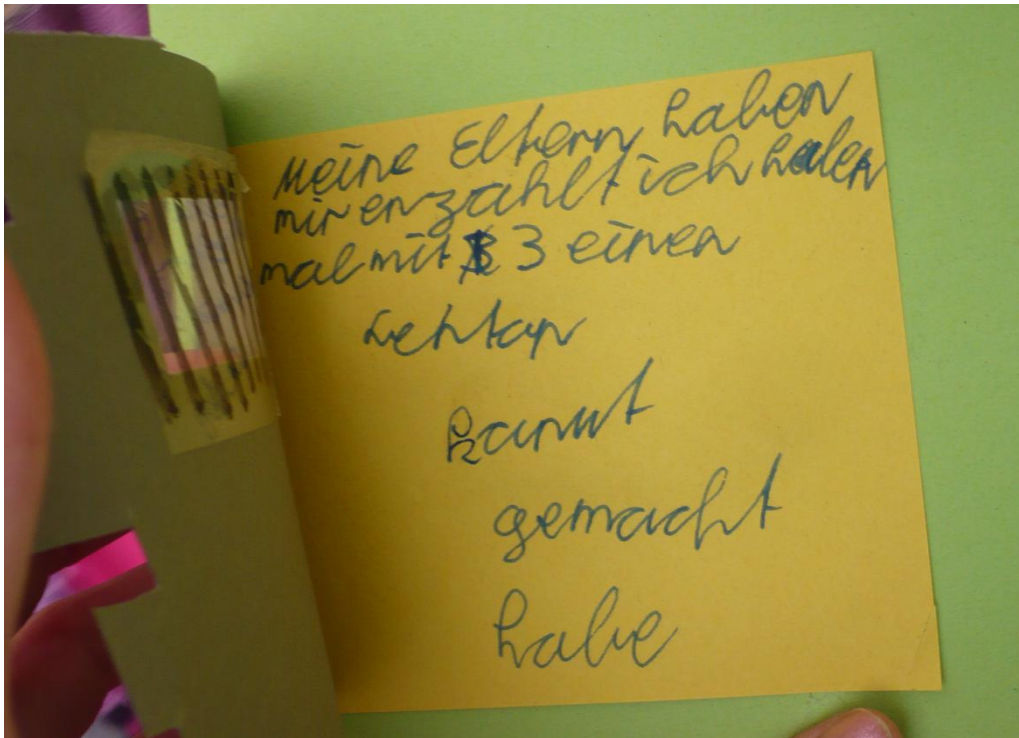 Meine Eltern haben
mir erzahlt ich haben
mal mit 3 einen
Lehtop
kaput
gemacht
habe